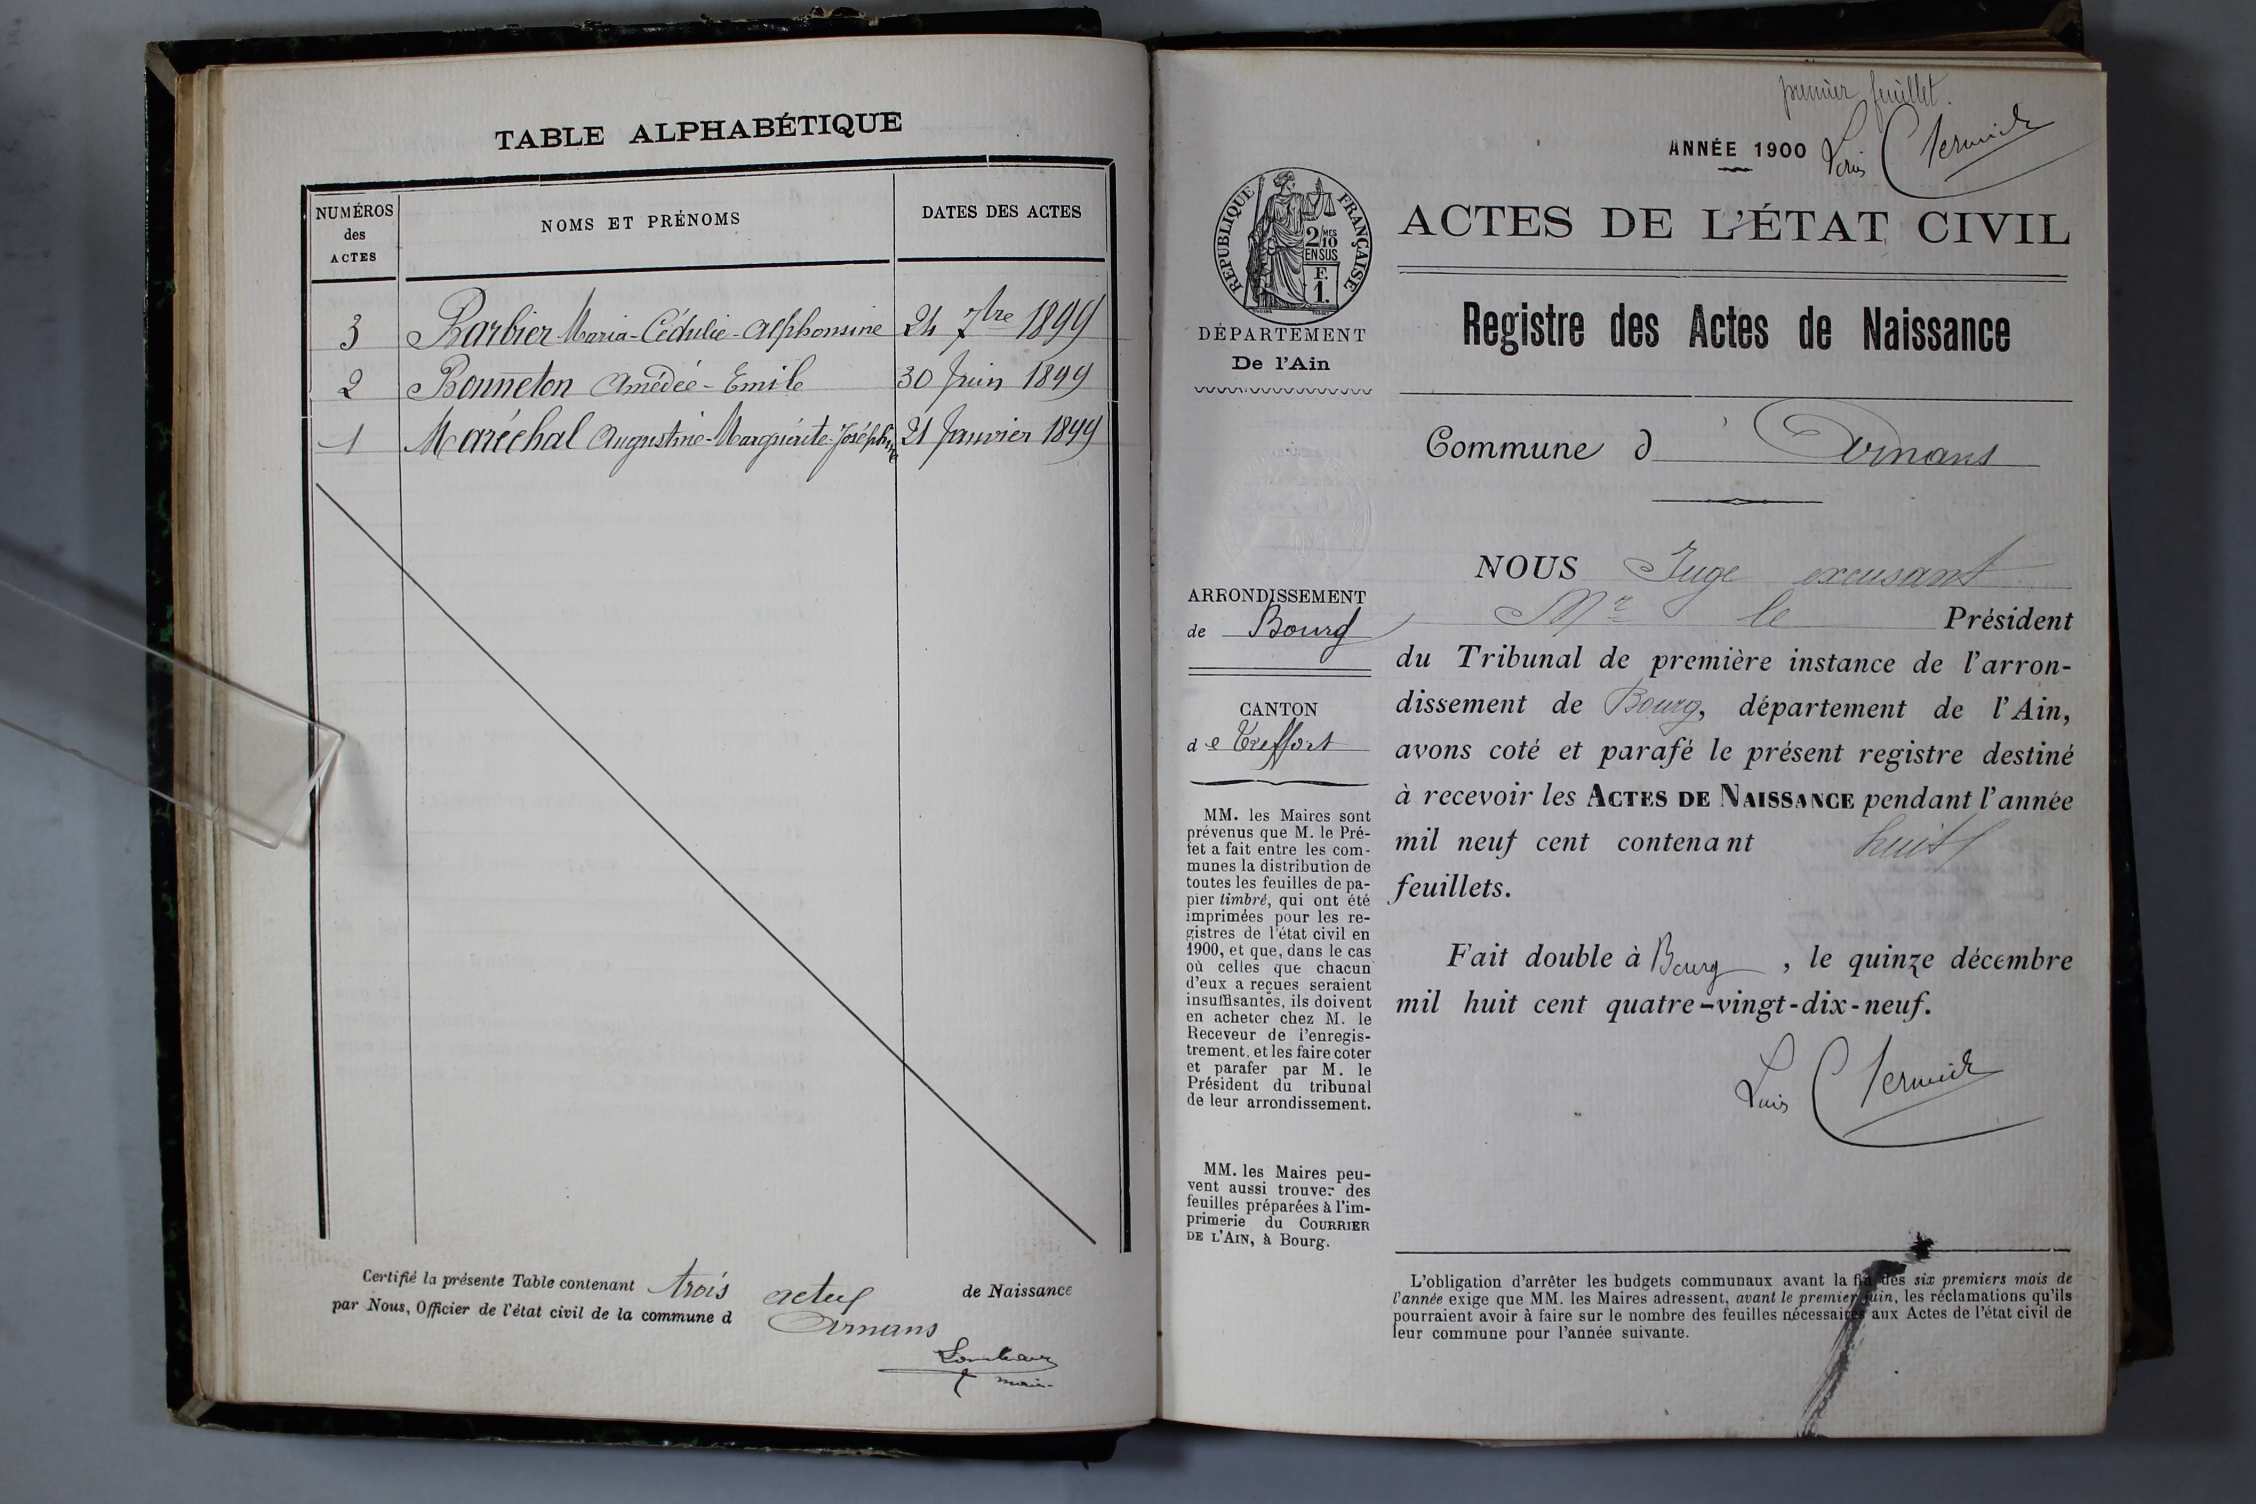 TABLE ALPHABÉTIQUE
NUMÉROS
des
ACTES
NOMS ET PRÉNOMS
DATES DES ACTES
3 Barbier Maria-Cédulie-Alphonsine 24 7bre 1899
2 Bonneton Amédée-Emile 30 Juin 1899
1 Maréchal Augustine-Marguérite-Joséphine 21 Janvier 1899
Certifié la présente Table contenant trois actes de Naissance
par Nous, Officier de l'état civil de la commune d Arnans
maire
premier feuillet.
ANNÉE 1900
Louis
RÉPUBLIQUE FRANÇAISE
2/10 MES
EN SUS
F.
1.
DÉPARTEMENT
De l'Ain
ARRONDISSEMENT
de Bourg
CANTON
de Treffort
MM. les Maires sont
prévenus que M. le Pré-
fet a fait entre les com-
munes la distribution de
toutes les feuilles de pa-
pier timbré, qui ont été
imprimées pour les re-
gistres de l'état civil en
1900, et que, dans le cas
où celles que chacun
d'eux a reçues seraient
insuffisantes, ils doivent
en acheter chez M. le
Receveur de l'enregis-
trement, et les faire coter
et parafer par M. le
Président du tribunal
de leur arrondissement.
MM. les Maires peu-
vent aussi trouver des
feuilles préparées à l'im-
primerie du COURRIER
DE L'AIN, à Bourg.
ACTES DE L'ÉTAT CIVIL
Registre des Actes de Naissance
Commune d' Arnans
NOUS Juge excusant
Mr le Président
du Tribunal de première instance de l'arron-
dissement de Bourg, département de l'Ain,
avons coté et parafé le présent registre destiné
à recevoir les ACTES DE NAISSANCE pendant l'année
mil neuf cent contenant huit
feuillets.
Fait double à Bourg, le quinze décembre
mil huit cent quatre-vingt-dix-neuf.
Louis
L'obligation d'arrêter les budgets communaux avant la fin des six premiers mois de
l'année exige que MM. les Maires adressent, avant le premier juin, les réclamations qu'ils
pourraient avoir à faire sur le nombre des feuilles nécessaires aux Actes de l'état civil de
leur commune pour l'année suivante.